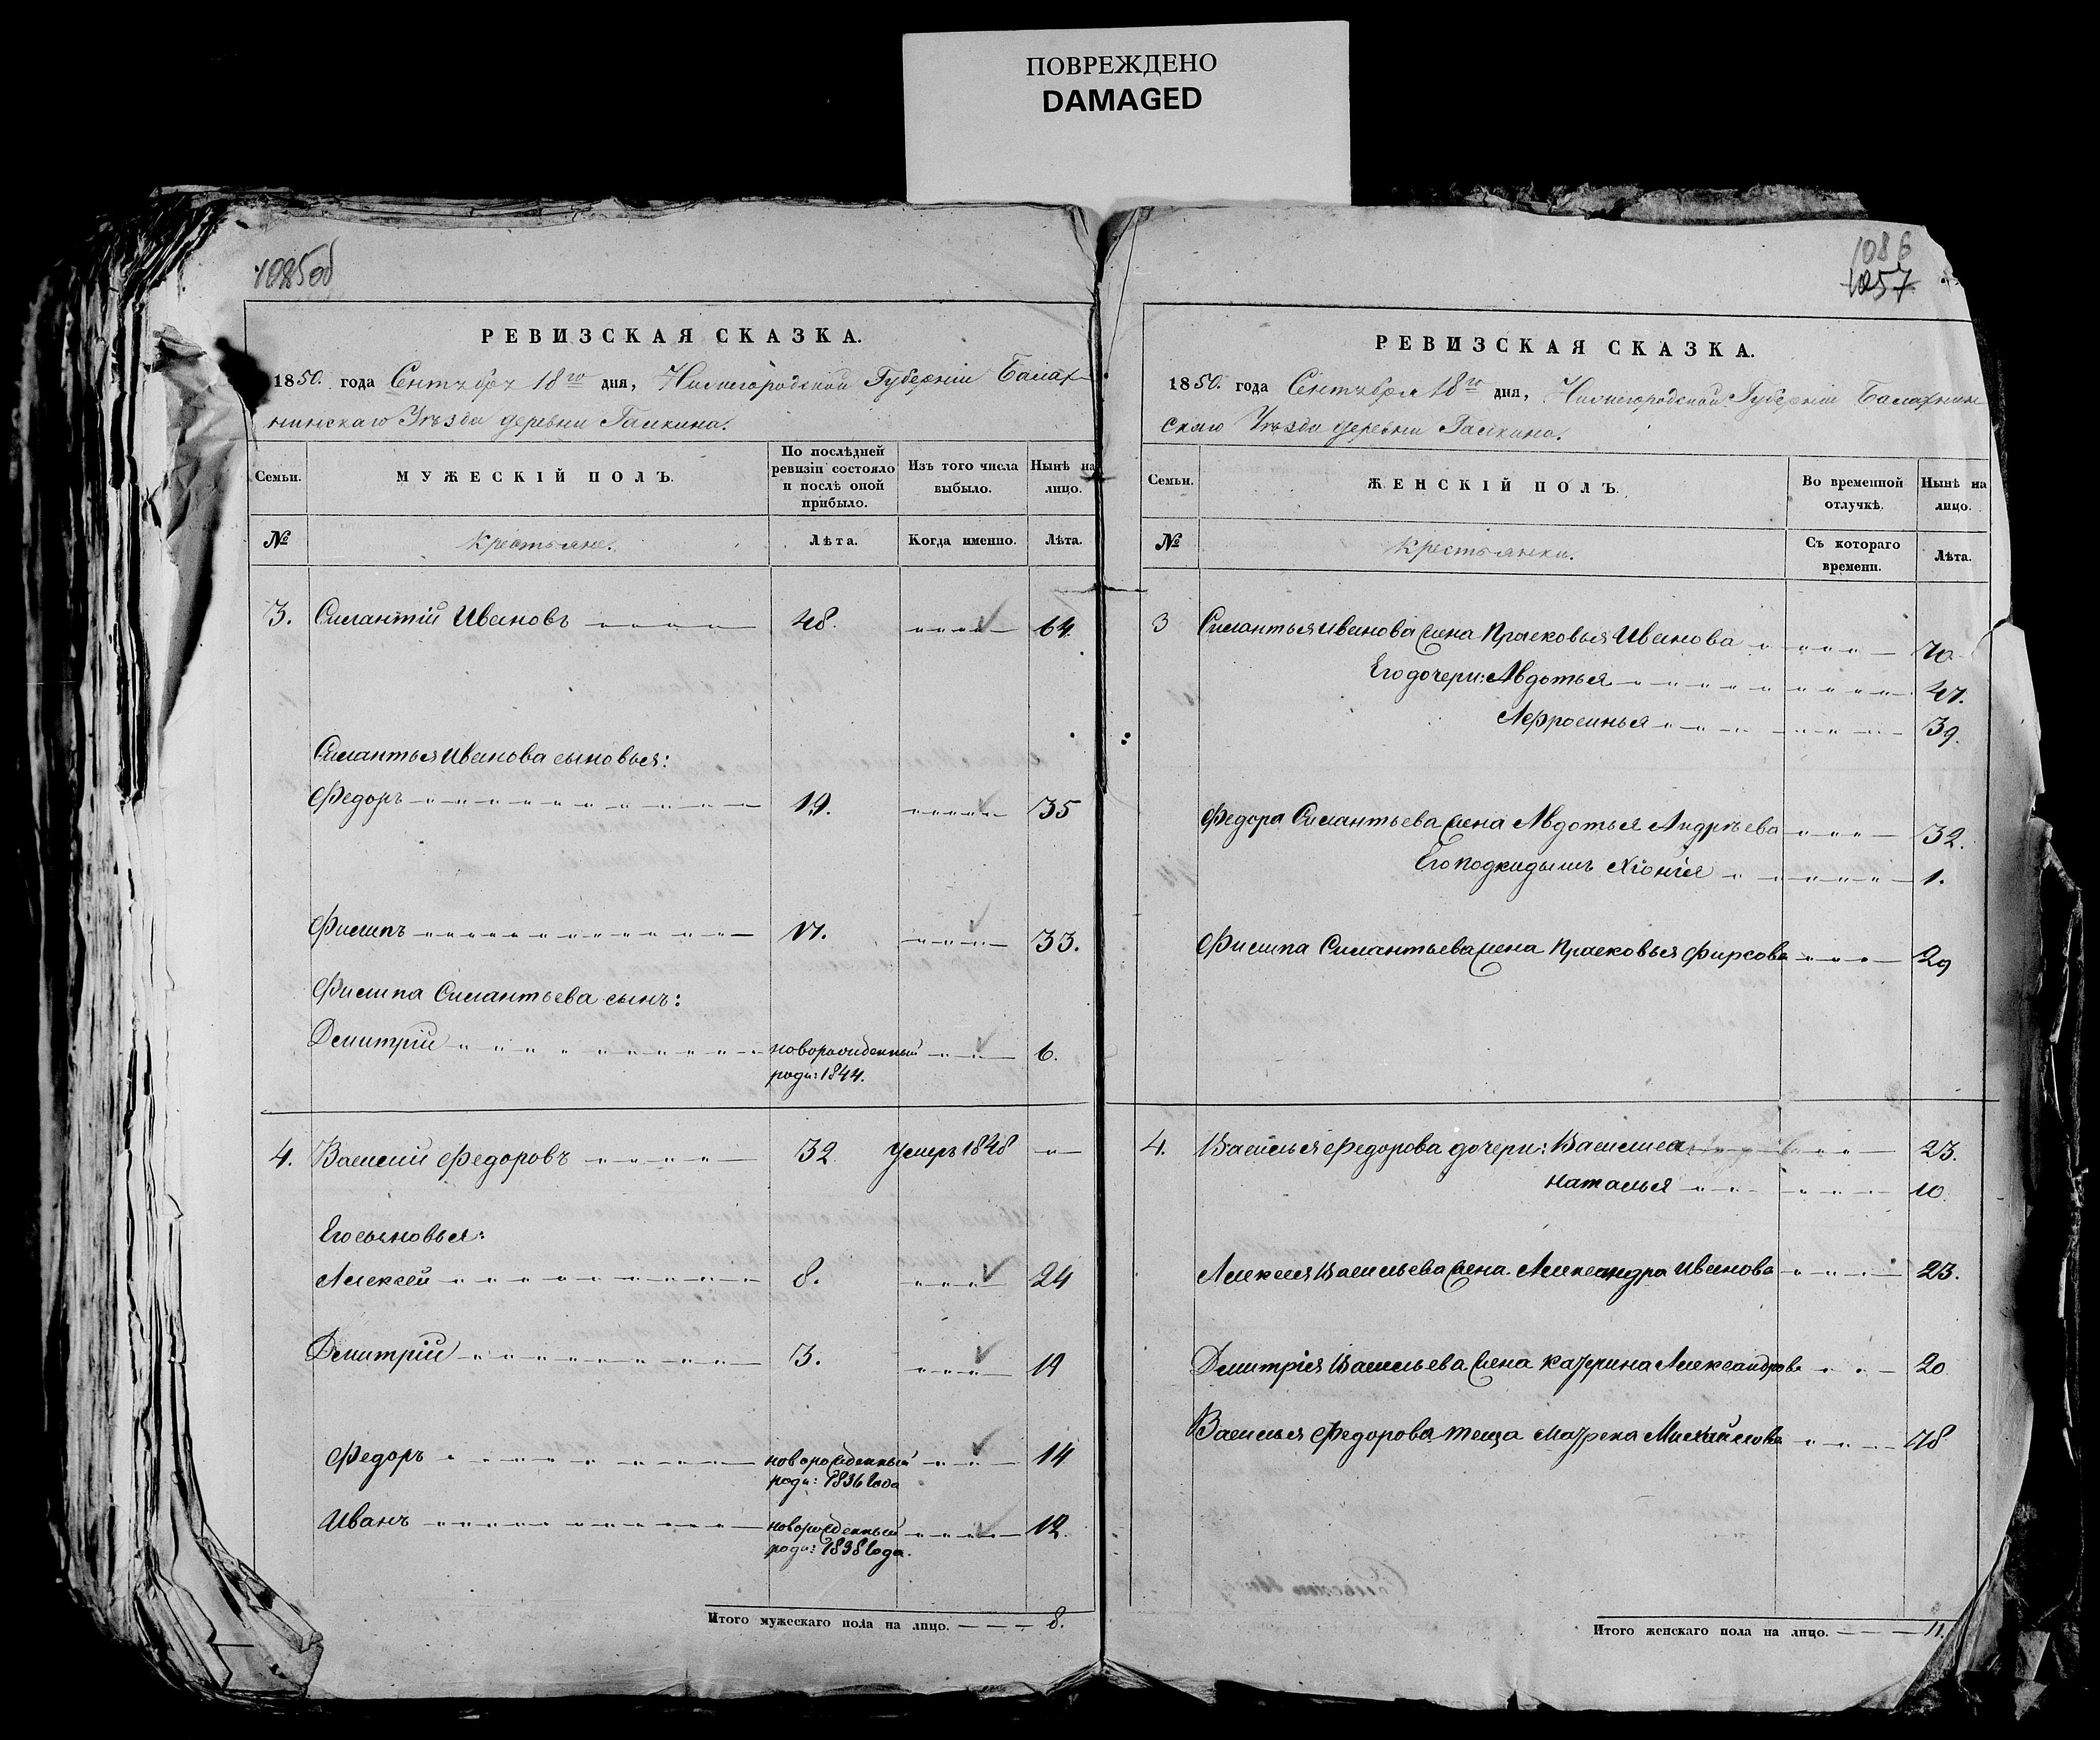 ПОВРЕЖДЕНО
DAMAGED
1085об
РЕВИЗСКАЯ СКАЗКА.
1850. года Сентября 18го дня, Нижегородской Губерніи Балах-
нинскаго Уѣзда деревни Галкина.
Семьи. МУЖЕСКІЙ ПОЛЪ. По послѣдней ревизіи состояло и послѣ оной прибыло. Изъ того числа выбыло. Нынѣ на лицо.
№ Крестьяне. Лѣта. Когда именно. Лѣта.
3. Силантій Ивановъ 48. 64.
Силантья Иванова сыновья:
Федоръ 19. 35
Филипъ 17. 33.
Филипа Силантьева сынъ:
Дмитрій новорожденный 6.
роди: 1844.
4. Василій Федоровъ 32 умеръ 1848 —
Его сыновья:
Алексей 8. 24
Дмитрій 3. 19
Федоръ новорожденный 14
роди: 1836 года
Иванъ новорожденный 12.
роди: 1838 года.
Итого мужескаго пола на лицо. — — — 8.
1086
1057
РЕВИЗСКАЯ СКАЗКА.
1850. года Сентября 18го дня, Нижегородской Губерніи Балахнин
скаго Уѣзда деревни Галкина.
Семьи. ЖЕНСКІЙ ПОЛЪ. Во временной отлучкѣ. Нынѣ на лицо.
№ Крестьянки. Съ котораго времени. Лѣта.
3 Силантья Иванова жена Прасковья Иванова 70
Его дочери: Авдотья 47.
Афросинья 39.
Федора Силантьева жена Авдотья Андрѣева 32.
Его подкидышъ Хіонія 1.
Филипа Силантьева жена Прасковья Фирсова 29
4. Василья Федорова дочери: Василиса 23.
Наталья 10.
Алексея Васильева жена Александра Иванова 23.
Дмитрія Васильева жена Катерина Александрова 20
Василья Федорова теща Матрена Михайлова 78
Итого женскаго пола на лицо. — — — 11.